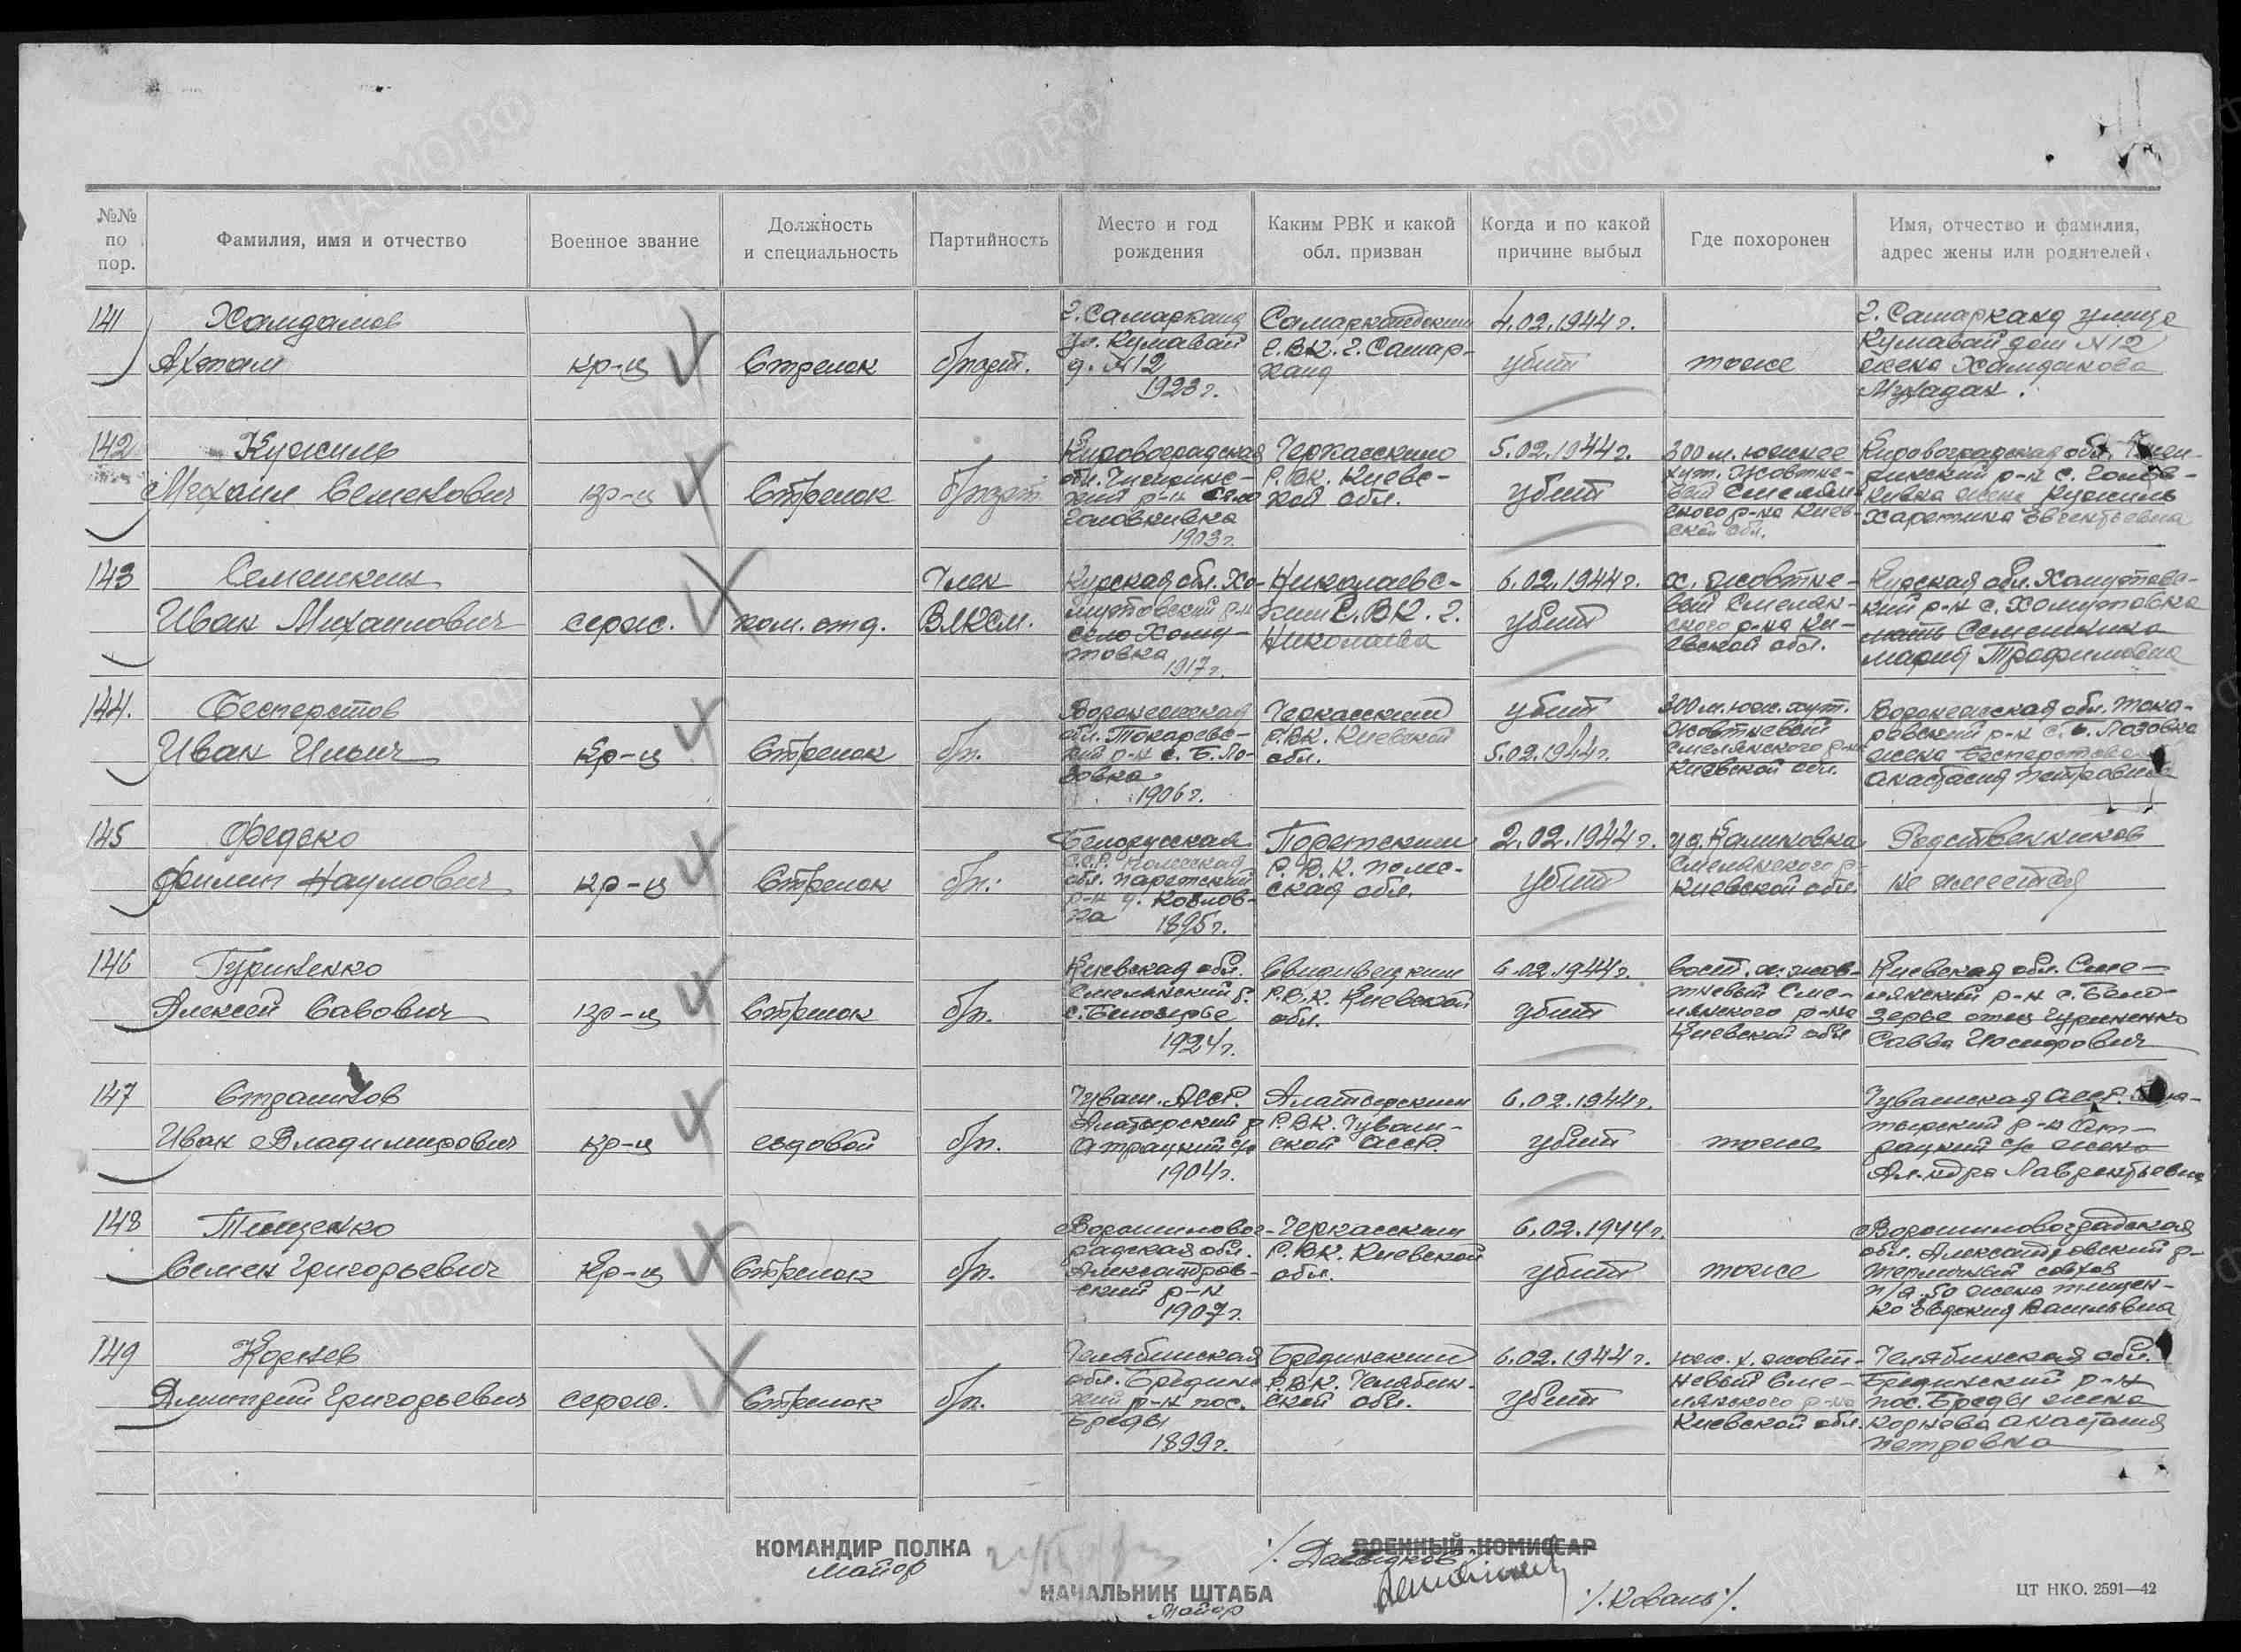 №№ по пор.
Фамилия, имя и отчество
Военное звание
Должность и специальность
Партийность
Место и год рождения
Каким РВК и какой обл. призван
Когда и по какой причине выбыл
Где похоронен
Имя, отчество и фамилия, адрес жены или родителей.
141
Хамдамов
Ахтам
кр-ц
Стрелок
б/парт.
г. Самарканд
ул. Кумавай
д. №12
1923 г.
Самаркандским
г. Самар-
4.02.1944 г.
убит
тоже
г. Самарканд улица
Кумавай дом №12
жена Хамдамова
142
Кужиль
Михаил Семенович
кр-ц
Стрелок
б/парт.
Кировоградская
обл. Чигиринс-
кий р-н село
Головкивка
1903 г.
Черкасским
Р.В.К. Киевс-
кой обл.
5.02.1944 г.
убит
300 м. южнее
хут. Жовтне-
вый Смелян-
ского р-на Киев-
ской обл.
Кировоградская обл. Чиги-
ринский р-н с. Голов-
кивка жена Кужиль
143
Семешкин
Иван Михайлович
серж.
ком. отд.
Член
ВЛКСМ.
Курская обл. Хо-
мутовский р-н
село Хому-
товка
1917 г.
Николаевс-
ким Г.В.К. г.
Николаева
6.02.1944 г.
убит
х. Жовтне-
вый Смелян-
ского р-на Ки-
евской обл.
Курская обл. Хомутовс-
кий р-н с. Хомутовка
мать Семешкина
Мария Трофимовна
144.
Бесперстов
Иван Ильич
кр-ц
Стрелок
б/п.
Воронежская
обл. Токаревс-
кий р-н с. Б. Ло-
зовка
1906 г.
Черкасским
Р.В.К. Киевской
обл.
убит
5.02.1944 г.
300 м. юж. хут.
Жовтневый
Смелянского р-на
Киевской обл.
Воронежская обл. Тока-
ревский р-н с. Б. Лозовка
жена Бесперстова
Анастасия Петровна
145
Федско
Филип Наумович
кр-ц
Стрелок
б/п.
Белорусская
С.С.Р. Полесская
обл. Паретский
р-н д. Козлов-
ка
1895 г.
Поретским
Р.В.К. Поле-
ская обл.
2.02.1944 г.
убит
Смелянского р-
Киевской обл.
Родственников
не имеется
146
Гуриненко
Алексей Савович
кр-ц
Стрелок
б/п.
Киевская обл.
Смелянский р.
с. Белозерье
1924 г.
Свидивецким
Р.В.К. Киевской
обл.
6.02.1944 г.
убит
вост. х. Жов-
тневый Сме-
лянского р-на
Киевской обл
Киевская обл. Сме-
лянский р-н с. Бело-
зерье отец Гуриненко
Савва Иосифович
147
Страшнов
Иван Владимирович
кр-ц
ездовой
б/п.
Чуваш. АССР.
Алатырский р
Атрацкий с/с
1904 г.
Алатырским
Р.В.К. Чуваш-
ской АССР.
6.02.1944 г.
убит
тоже
Чувашская АССР. Ала-
тырский р-н Ат-
рацкий с/с жена
Ал-ндра Лаврентьевна
148
Тищенко
Семен Григорьевич
кр-ц
Стрелок
б/п.
Ворошиловог-
радская обл.
Александров-
ский р-н
1907 г.
Черкасским
Р.В.К. Киевской
обл.
6.02.1944 г.
убит
тоже
Ворошиловоградская
обл. Александровский р-
совхоз
п/о 50 жена Тищен-
ко Евдокия Васильевна
149
Корнев
Дмитрий Григорьевич
серж.
Стрелок
б/п.
Челябинская
обл. Бредин
кий р-н пос.
Бреды
1899 г.
Брединским
Р.В.К. Челябин-
ской обл.
6.02.1944 г.
убит
юж. х. Жовт-
невый Сме-
лянского р-на
Киевской обл.
Челябинская обл.
Брединский р-н
пос. Бреды жена
Корнева Анастасия
Петровна
КОМАНДИР ПОЛКА
майор
ВОЕННЫЙ КОМИССАР
НАЧАЛЬНИК ШТАБА
майор
/.Коваль/.
ЦТ НКО. 2591—42